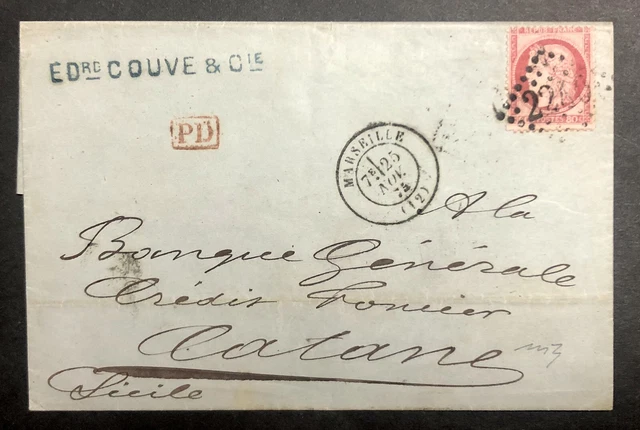 EDRD COUVE & CIE
REPUB FRANC
PD
MARSEILLE
7E 25
NOV.
75
(12)
A la
Banque Générale
Crédit Foncier
Catane
Sicile